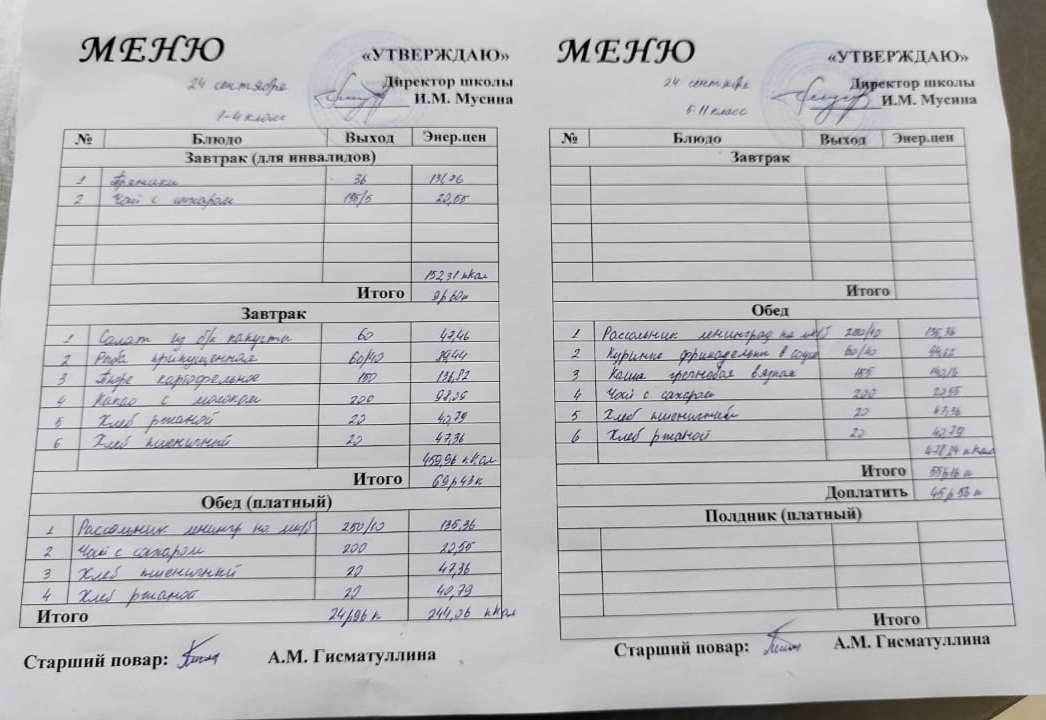 МЕНЮ
«УТВЕРЖДАЮ»
24 сентября
Директор школы
И.М. Мусина
1-4 класс
№ Блюдо Выход Энер.цен
Завтрак (для инвалидов)
1 Пряники 36 131,76
2 Чай с сахаром 195/5 20,55
152,31 кКал
Итого 9р60к
Завтрак
1 Салат из б/к капусты 60 47,46
2 Рыба припущенная 60/40 89,44
3 Пюре картофельное 150 136,82
4 Какао с молоком 200 98,09
5 Хлеб ржаной 20 40,79
6 Хлеб пшеничный 20 47,36
459,96 кКал
Итого 69р43к
Обед (платный)
1 Рассольник ленингр на мк/б 250/10 135,36
2 Чай с сахаром 200 20,55
3 Хлеб пшеничный 20 47,36
4 Хлеб ржаной 20 40,79
Итого 24р96к 244,06 кКал
Старший повар: А.М. Гисматуллина
МЕНЮ
«УТВЕРЖДАЮ»
24 сентября
Директор школы
И.М. Мусина
5-11 класс
№ Блюдо Выход Энер.цен
Завтрак
Итого
Обед
1 Рассольник ленинград на мк/б 250/10 135,36
2 Куриные фрикадельки в соусе
3 Каша гречневая вязкая 155
4 Чай с сахаром 200 20,55
5 Хлеб пшеничный 20 47,36
6 Хлеб ржаной 20 40,79
478,24 кКал
Итого
Доплатить 45р56к
Полдник (платный)
Итого
Старший повар: А.М. Гисматуллина